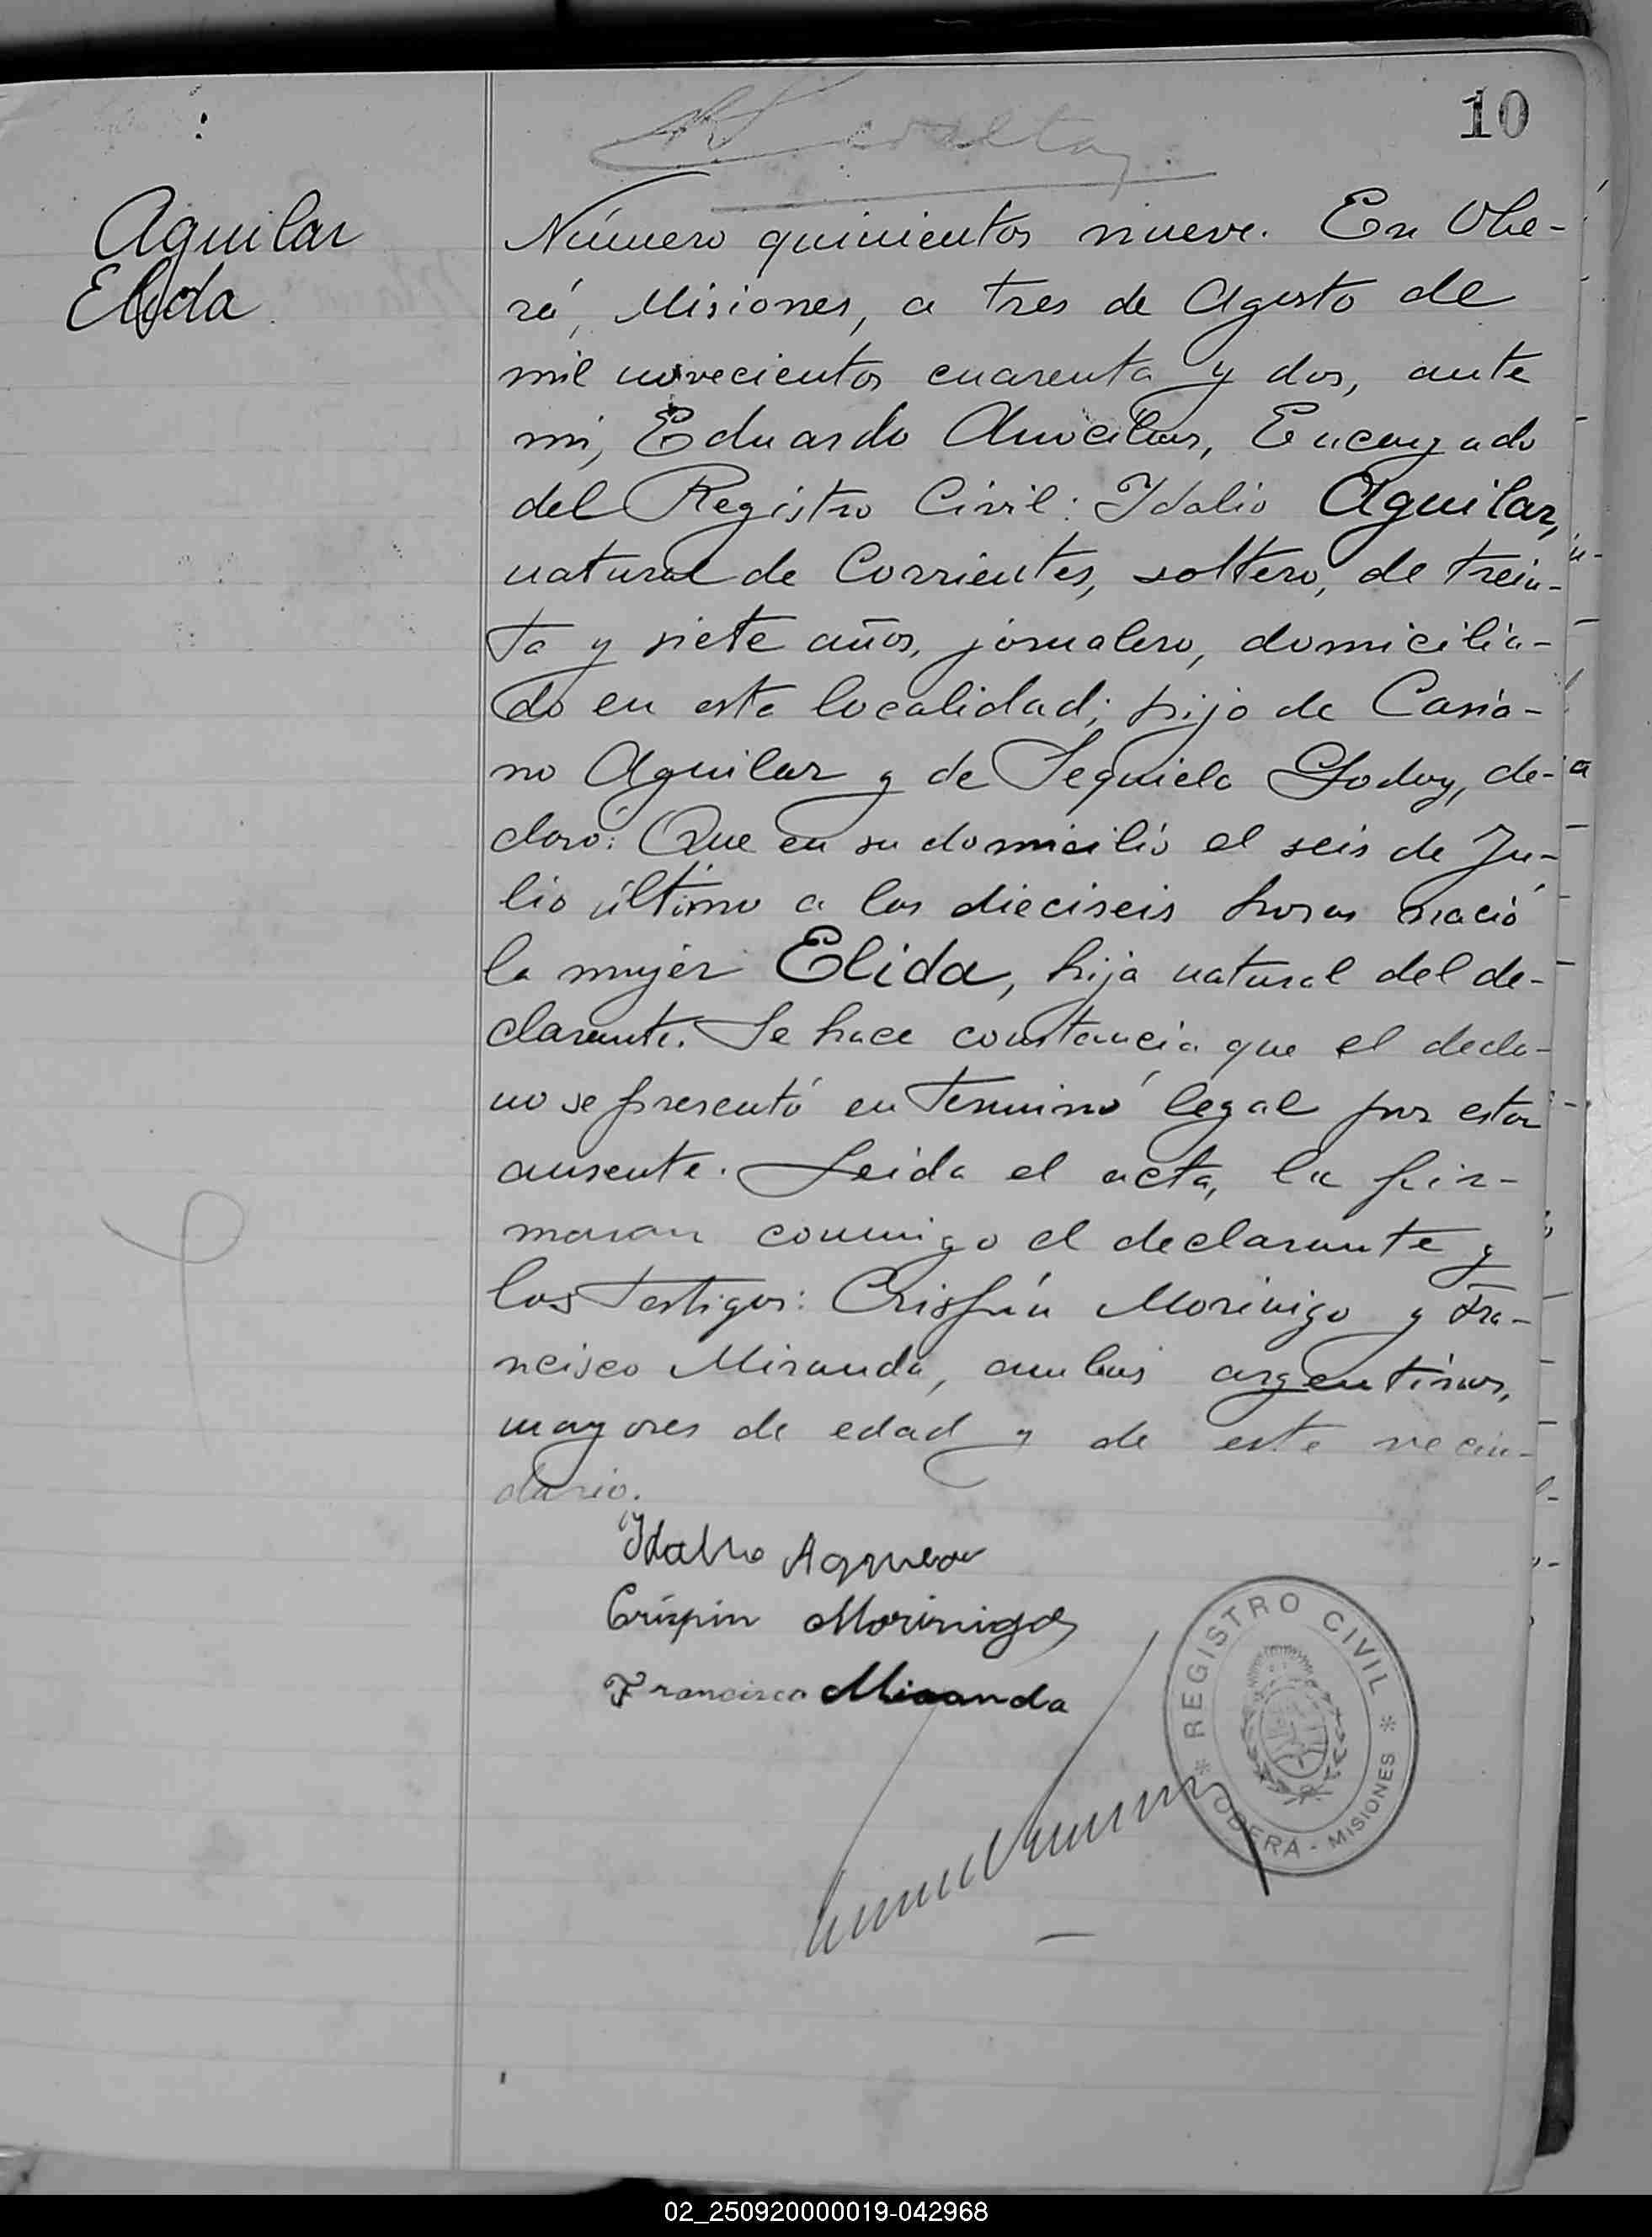 10
Aguilar
Elida
Número quinientos nueve. En Obe-
rá, Misiones, a tres de Agosto de
mil novecientos cuarenta y dos, ante
mi, Eduardo Encargado
del Registro Civil: Idalio Aguilar,
natural de Corrientes, soltero, de trein-
ta y siete años, jornalero, domicilia-
do en esta localidad; hijo de Casia-
no Aguilar y de Sequiela Godoy, de-
claró: Que en su domicilio el seis de Ju-
lio último a las dieciseis horas nació
la mujer Elida, hija natural del de-
clarante. Se hace constancia que el decla-
no se presentó en termino legal por estar
ausente. Leida el acta, la fir-
maran conmigo el declarante y
los testigos: Crispín Morinigo y Fra-
ncisco Miranda, ambos argentinos,
mayores de edad y de este vecin-
dario.
Idalio Aguilar
Crispin Morinigo
Francisco Miranda
* REGISTRO CIVIL *
OBERA - MISIONES
02_250920000019-042968